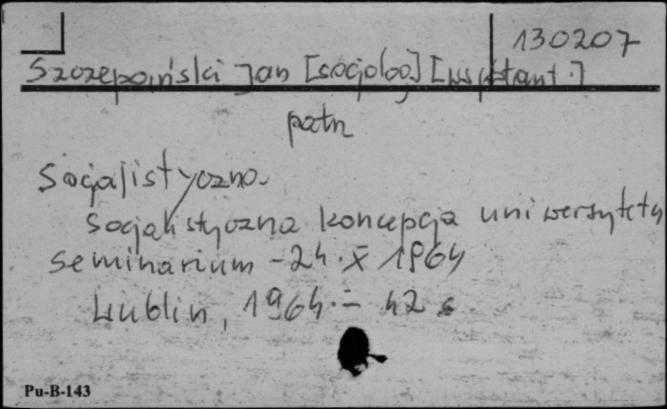 130207
Szczepański Jan [socjolog] [współaut.]
patrz
Socjalistyczna.
Socjalistyczna koncepcja uniwersytetu
seminarium - 24.X 1964
Lublin, 1964. - 42 s
Pu-B-143